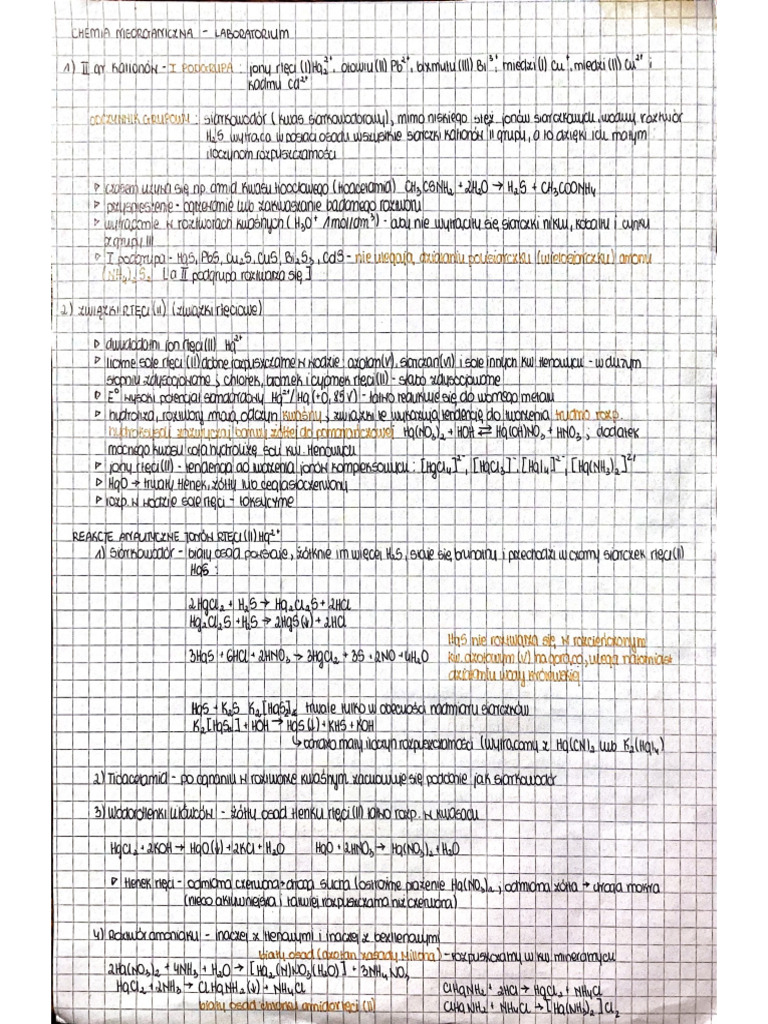 CHEMIA NIEORGANICZNA - LABORATORIUM
1) II gr. kationów - I PODGRUPA : jony rtęci (I) Hg₂²⁺, ołowiu (II) Pb²⁺, bizmutu (III) Bi³⁺, miedzi (I) Cu⁺, miedzi (II) Cu²⁺ i
kadmu Cd²⁺
ODCZYNNIK GRUPOWY : siarkowodór (kwas siarkowodorowy), mimo niskiego stęż. jonów siarczkowych, wodny roztwór
H₂S wytrąca w postaci osadu wszystkie siarczki kationów II grupy, a to dzięki ich małym
iloczynom rozpuszczalności
▷ czasem używa się np. amid kwasu tiooctowego (tioacetamid) CH₃CSNH₂ + 2H₂O → H₂S + CH₃COONH₄
▷ przyspieszenie - ogrzewanie lub zakwaszanie badanego roztworu
▷ wytrącanie w roztworach kwaśnych (H₃O⁺ 1mol/dm³) - aby nie wytrąciły się siarczki niklu, kobaltu i cynku
z grupy III
▷ I podgrupa - HgS, PbS, Cu₂S, CuS, Bi₂S₃, CdS - nie ulegają działaniu polisiarczku (wielosiarczku) amonu
(NH₄)₂S₂ [a II podgrupa roztwarza się]
2) ZWIĄZKI RTĘCI (II) (związki rtęciowe)
▷ dwudodatni jon rtęci (II) Hg²⁺
▷ liczne sole rtęci (II) dobrze rozpuszczalne w wodzie : azotan (V), siarczan (VI) i sole innych kw. tlenowych - w dużym
stopniu zdysocjowane ; chlorek, bromek i cyjanek rtęci (II) - słabo zdysocjowane
▷ E° wysoki potencjał standardowy Hg²⁺/Hg (+0,85 V) - łatwo redukuje się do wolnego metalu
▷ hydroliza, roztwory mają odczyn kwaśny ; związki te wykazują tendencję do tworzenia trudno rozp.
hydroksysoli zazwyczaj barwy żółtej do pomarańczowej Hg(NO₃)₂ + HOH ⇄ Hg(OH)NO₃ + HNO₃ ; dodatek
mocnego kwasu cofa hydrolizę soli kw. tlenowych
▷ jony rtęci (II) - tendencja do tworzenia jonów kompleksowych : [HgCl₄]²⁻, [HgCl₃]⁻, [HgI₄]²⁻, [Hg(NH₃)₂]²⁺
▷ HgO → trwały tlenek, żółty lub ceglastoczerwony
▷ rozp. w wodzie sole rtęci - toksyczne
REAKCJE ANALITYCZNE JONÓW RTĘCI (II) Hg²⁺
1) Siarkowodór - biały osad powstaje, żółknie im więcej H₂S, staje się brunatny i przechodzi w czarny siarczek rtęci (II)
HgS :
2HgCl₂ + H₂S → Hg₂Cl₂S + 2HCl
Hg₂Cl₂S + H₂S → 2HgS(↓) + 2HCl
3HgS + 6HCl + 2HNO₃ → 3HgCl₂ + 3S + 2NO + 4H₂O
HgS nie roztwarza się w rozcieńczonym
kw. azotowym (V) na gorąco, ulega natomiast
działaniu wody królewskiej
HgS + K₂S K₂[HgS₂], trwałe tylko w obecności nadmiaru siarczków
K₂[HgS₂] + HOH → HgS(↓) + KHS + KOH
↳ bardzo mały iloczyn rozpuszczalności (wytrącamy z Hg(CN)₂ lub K₂[HgI₄)
2) Tioacetamid - po ogrzaniu w roztworze kwaśnym zachowuje się podobnie jak siarkowodór
3) Wodorotlenki litowców - żółty osad tlenku rtęci (II) łatwo rozp. w kwasach
HgCl₂ + 2KOH → HgO(↓) + 2KCl + H₂O HgO + 2HNO₃ → Hg(NO₃)₂ + H₂O
▷ tlenek rtęci - odmiana czerwona → droga sucha (ostrożne prażenie Hg(NO₃)₂, odmiana żółta → droga mokra
(nieco aktywniejsza i łatwiej rozpuszczalna niż czerwona)
4) Roztwór amoniaku - inaczej z tlenowymi i inaczej z beztlenowymi
biały osad (azotan zasady Millona) - rozpuszczamy w kw. mineralnych
2Hg(NO₃)₂ + 4NH₃ + H₂O → [Hg₂(N)NO₃(H₂O)] + 3NH₄NO₃
HgCl₂ + 2NH₃ → ClHgNH₂(↓) + NH₄Cl ClHgNH₂ + 2HCl → HgCl₂ + NH₄Cl
biały osad chlorku amidortęci (II) ClHgNH₂ + NH₄Cl → [Hg(NH₃)₂]Cl₂